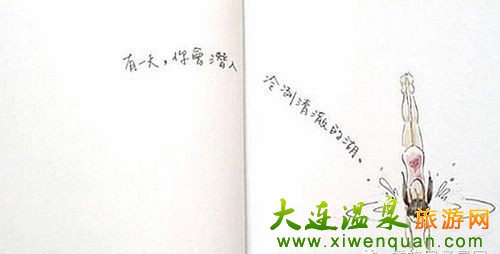 有一天，你會潛入
冷洌清澈的湖。
大连温泉旅游网
www.xiwenquan.com